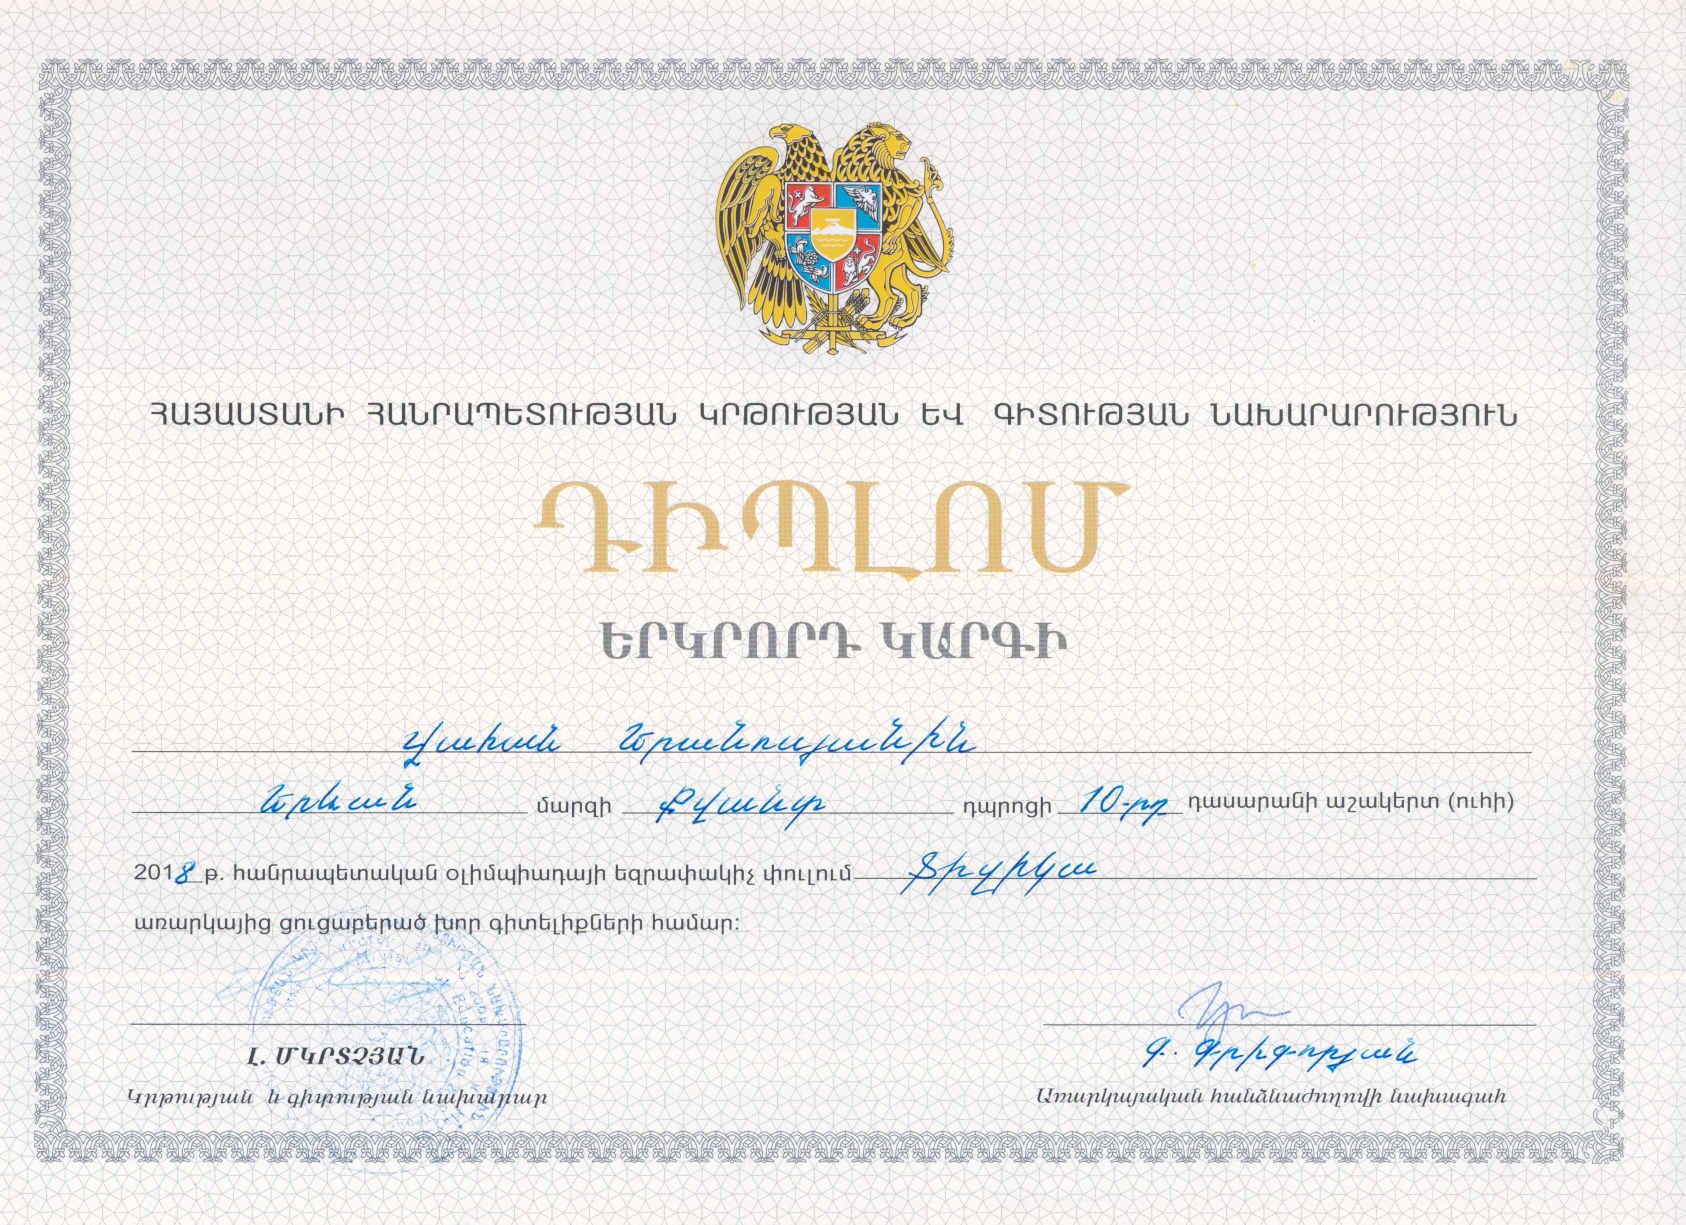 ՀԱՅԱՍՏԱՆԻ ՀԱՆՐԱՊԵՏՈՒԹՅԱՆ ԿՐԹՈՒԹՅԱՆ ԵՎ ԳԻՏՈՒԹՅԱՆ ՆԱԽԱՐԱՐՈՒԹՅՈՒՆ
ԴԻՊԼՈՄ
ԵՐԿՐՈՐԴ ԿԱՐԳԻ
Վահան Երանոսյանին
Երևան մարզի Քվանտ դպրոցի 10-րդ դասարանի աշակերտ (ուհի)
2018 թ. հանրապետական օլիմպիադայի եզրափակիչ փուլում Ֆիզիկա
առարկայից ցուցաբերած խոր գիտելիքների համար:
Լ. ՄԿՐՏՉՅԱՆ
Կրթության և գիտության նախարար
Գ. Գրիգորյան
Առարկայական հանձնաժողովի նախագահ